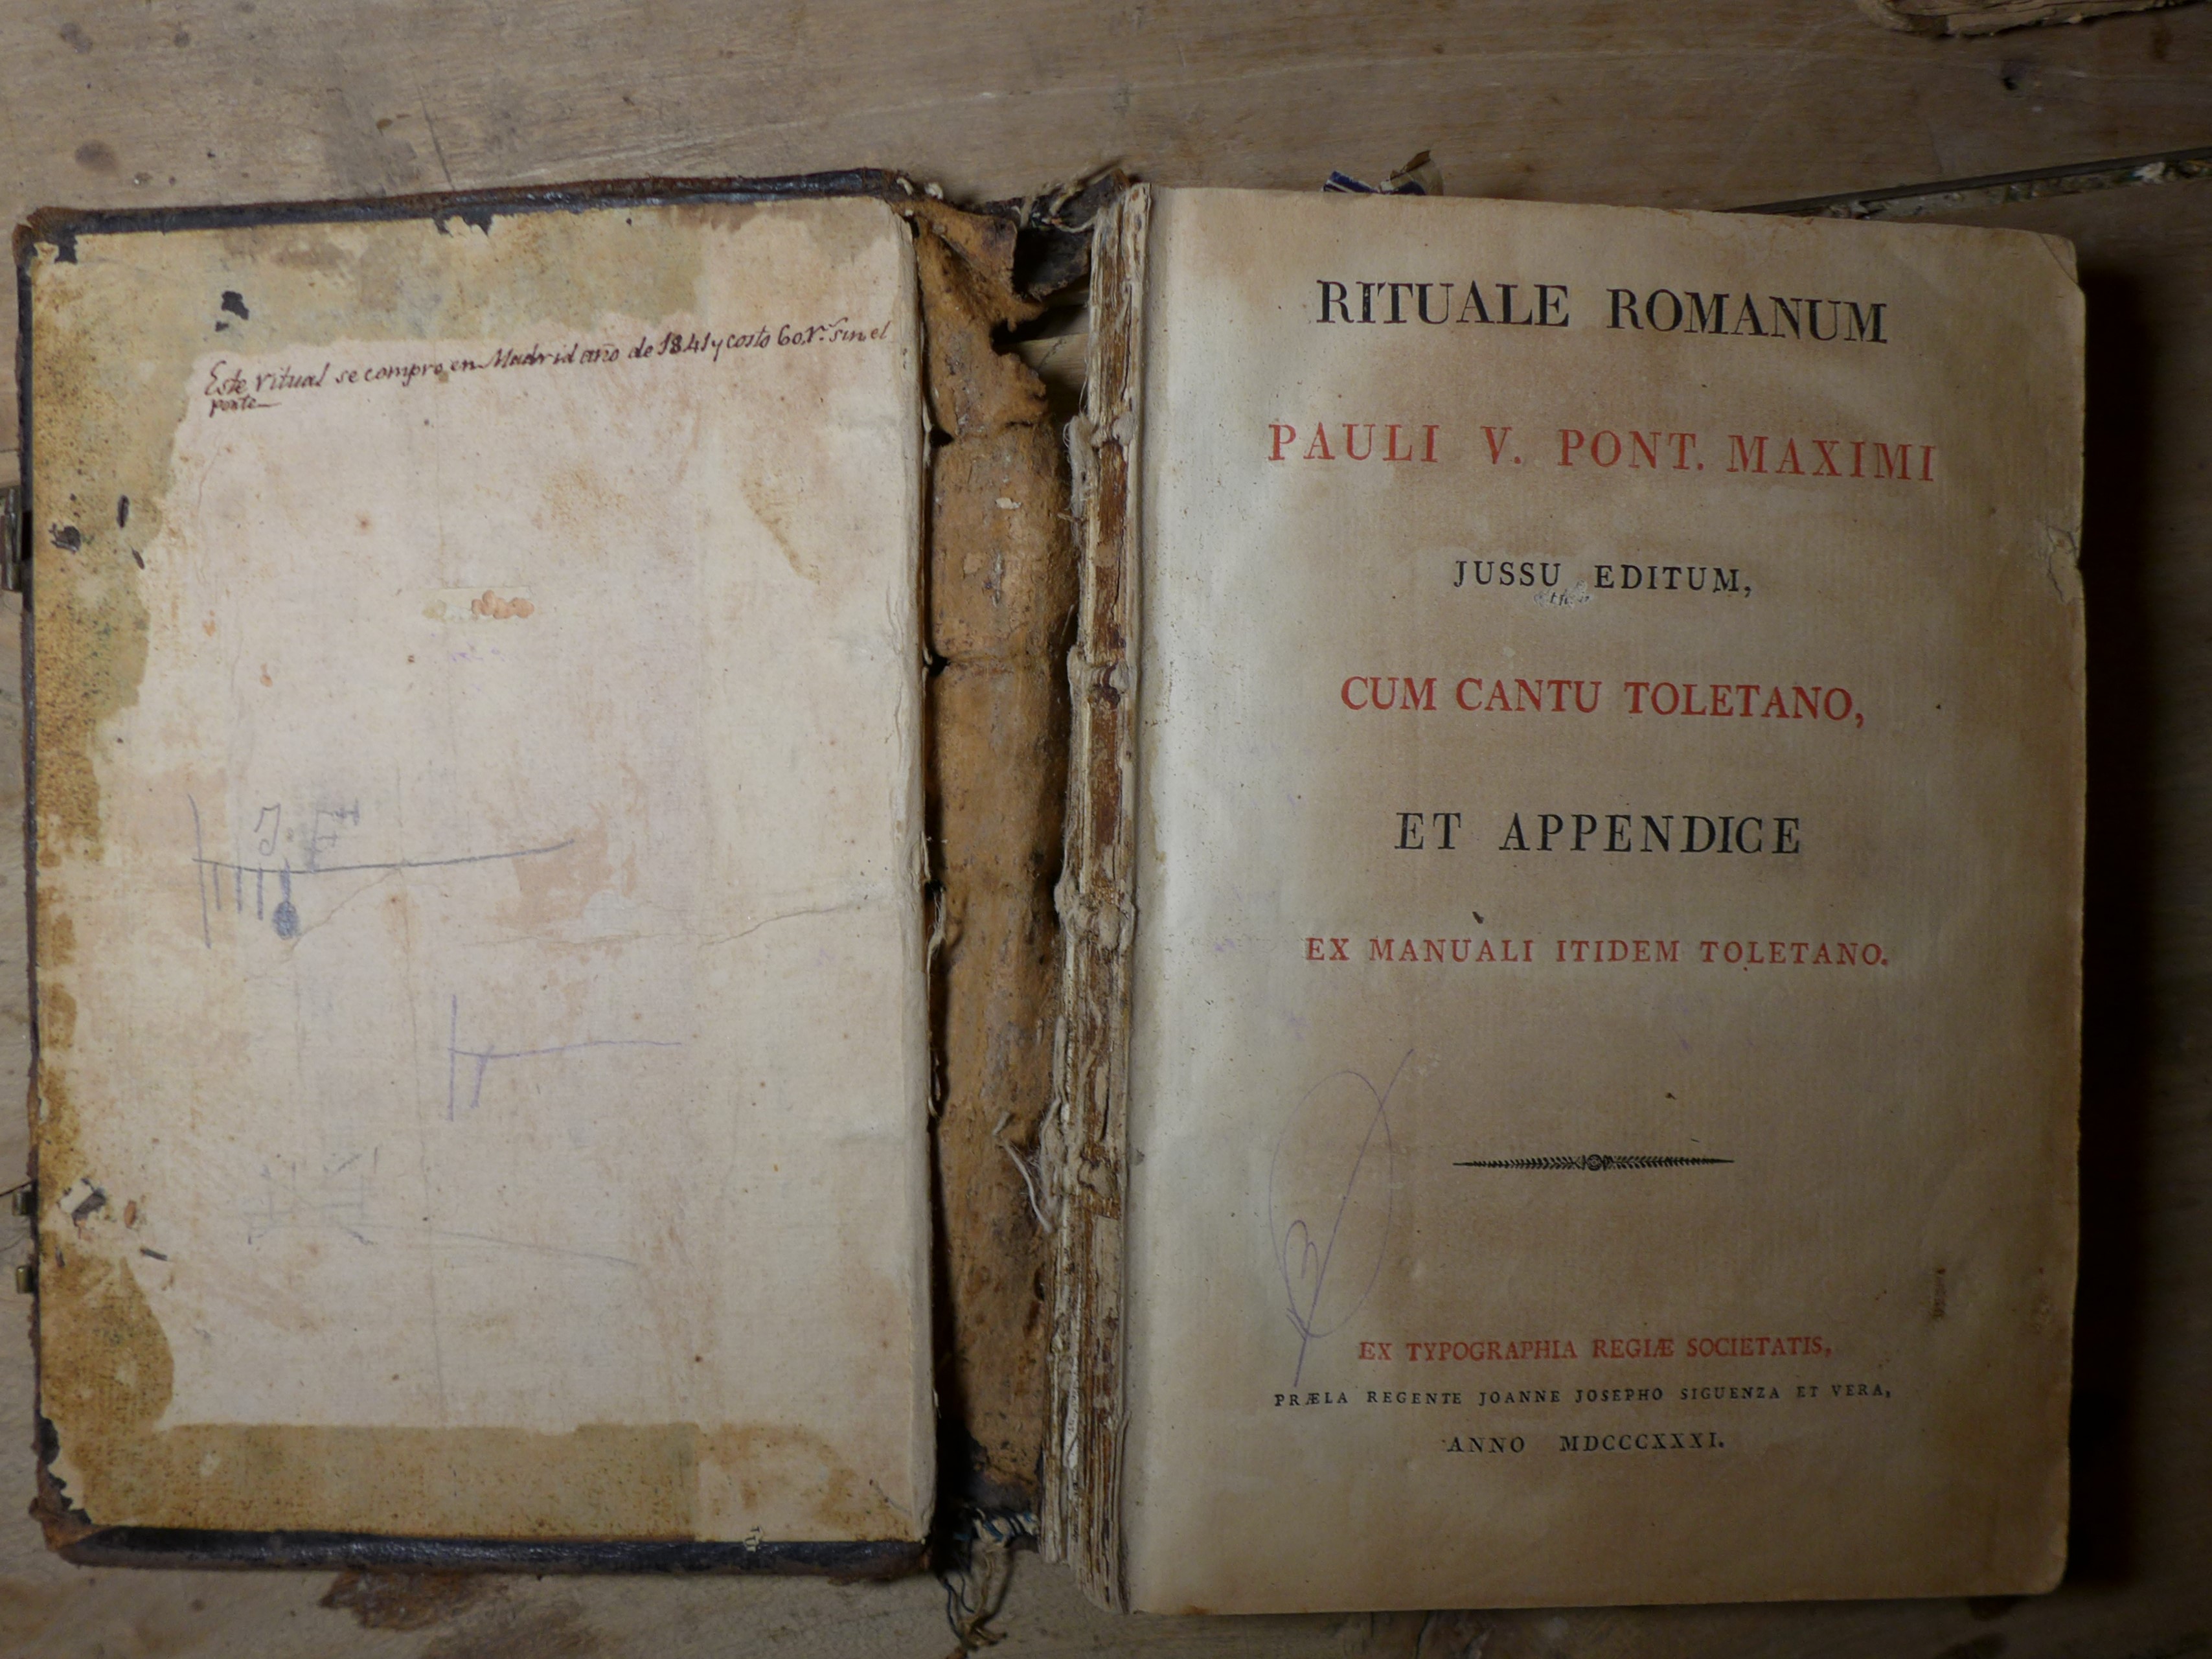 Este ritual se compro en Madrid año de 1841 y costo 60 rˢ sin el
porte
J. F
RITUALE ROMANUM
PAULI V. PONT. MAXIMI
JUSSU EDITUM,
CUM CANTU TOLETANO,
ET APPENDICE
EX MANUALI ITIDEM TOLETANO.
EX TYPOGRAPHIA REGIÆ SOCIETATIS,
PRÆLA REGENTE JOANNE JOSEPHO SIGUENZA ET VERA,
ANNO MDCCCXXXI.